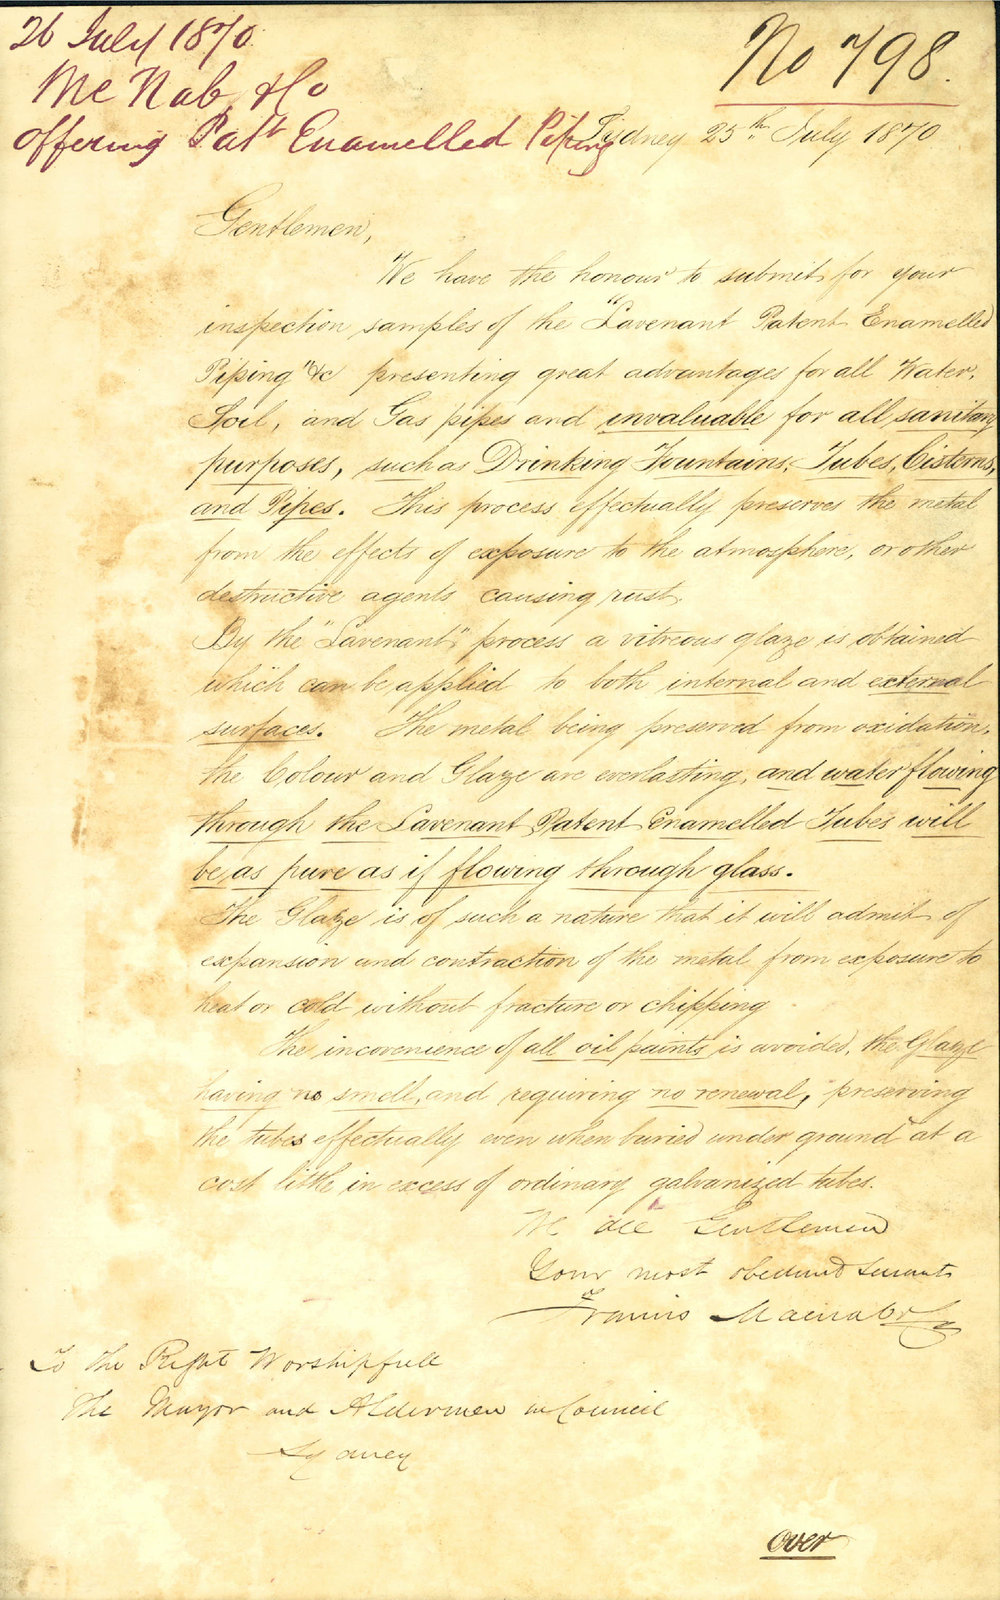 26 July 1870
No 798.
Mc Nab & Co
Offering Patt Enamelled Piping
Sydney 25th July 1870
Gentlemen,
We have the honour to submit for your
inspection samples of the "Lavenant Patent Enamelled
Piping" &c presenting great advantages for all Water,
Soil, and Gas pipes and invaluable for all sanitary
purposes, such as Drinking Fountains, Tubes, Cisterns,
and Pipes. This process effectually preserves the metal
from the effects of exposure to the atmosphere, or other
destructive agents causing rust.
By the "Lavenant" process a vitreous glaze is obtained
which can be applied to both internal and external
surfaces. The metal being preserved from oxidation,
the Colour and Glaze are everlasting, and water flowing
through the Lavenant Patent Enamelled Tubes will
be as pure as if flowing through glass.
The Glaze is of such a nature that it will admit of
expansion and contraction of the metal from exposure to
heat or cold without fracture or chipping
The inconvenience of all oil paints is avoided, the Glaze
having no smell, and requiring no renewal, preserving
the tubes effectually even when buried under ground at a
cost little in excess of ordinary galvanized tubes.
We are Gentlemen
Your most obedient Servants
Francis Macnab & Co
To the Right Worshipfull
The Mayor and Aldermen in Council
Sydney
Over